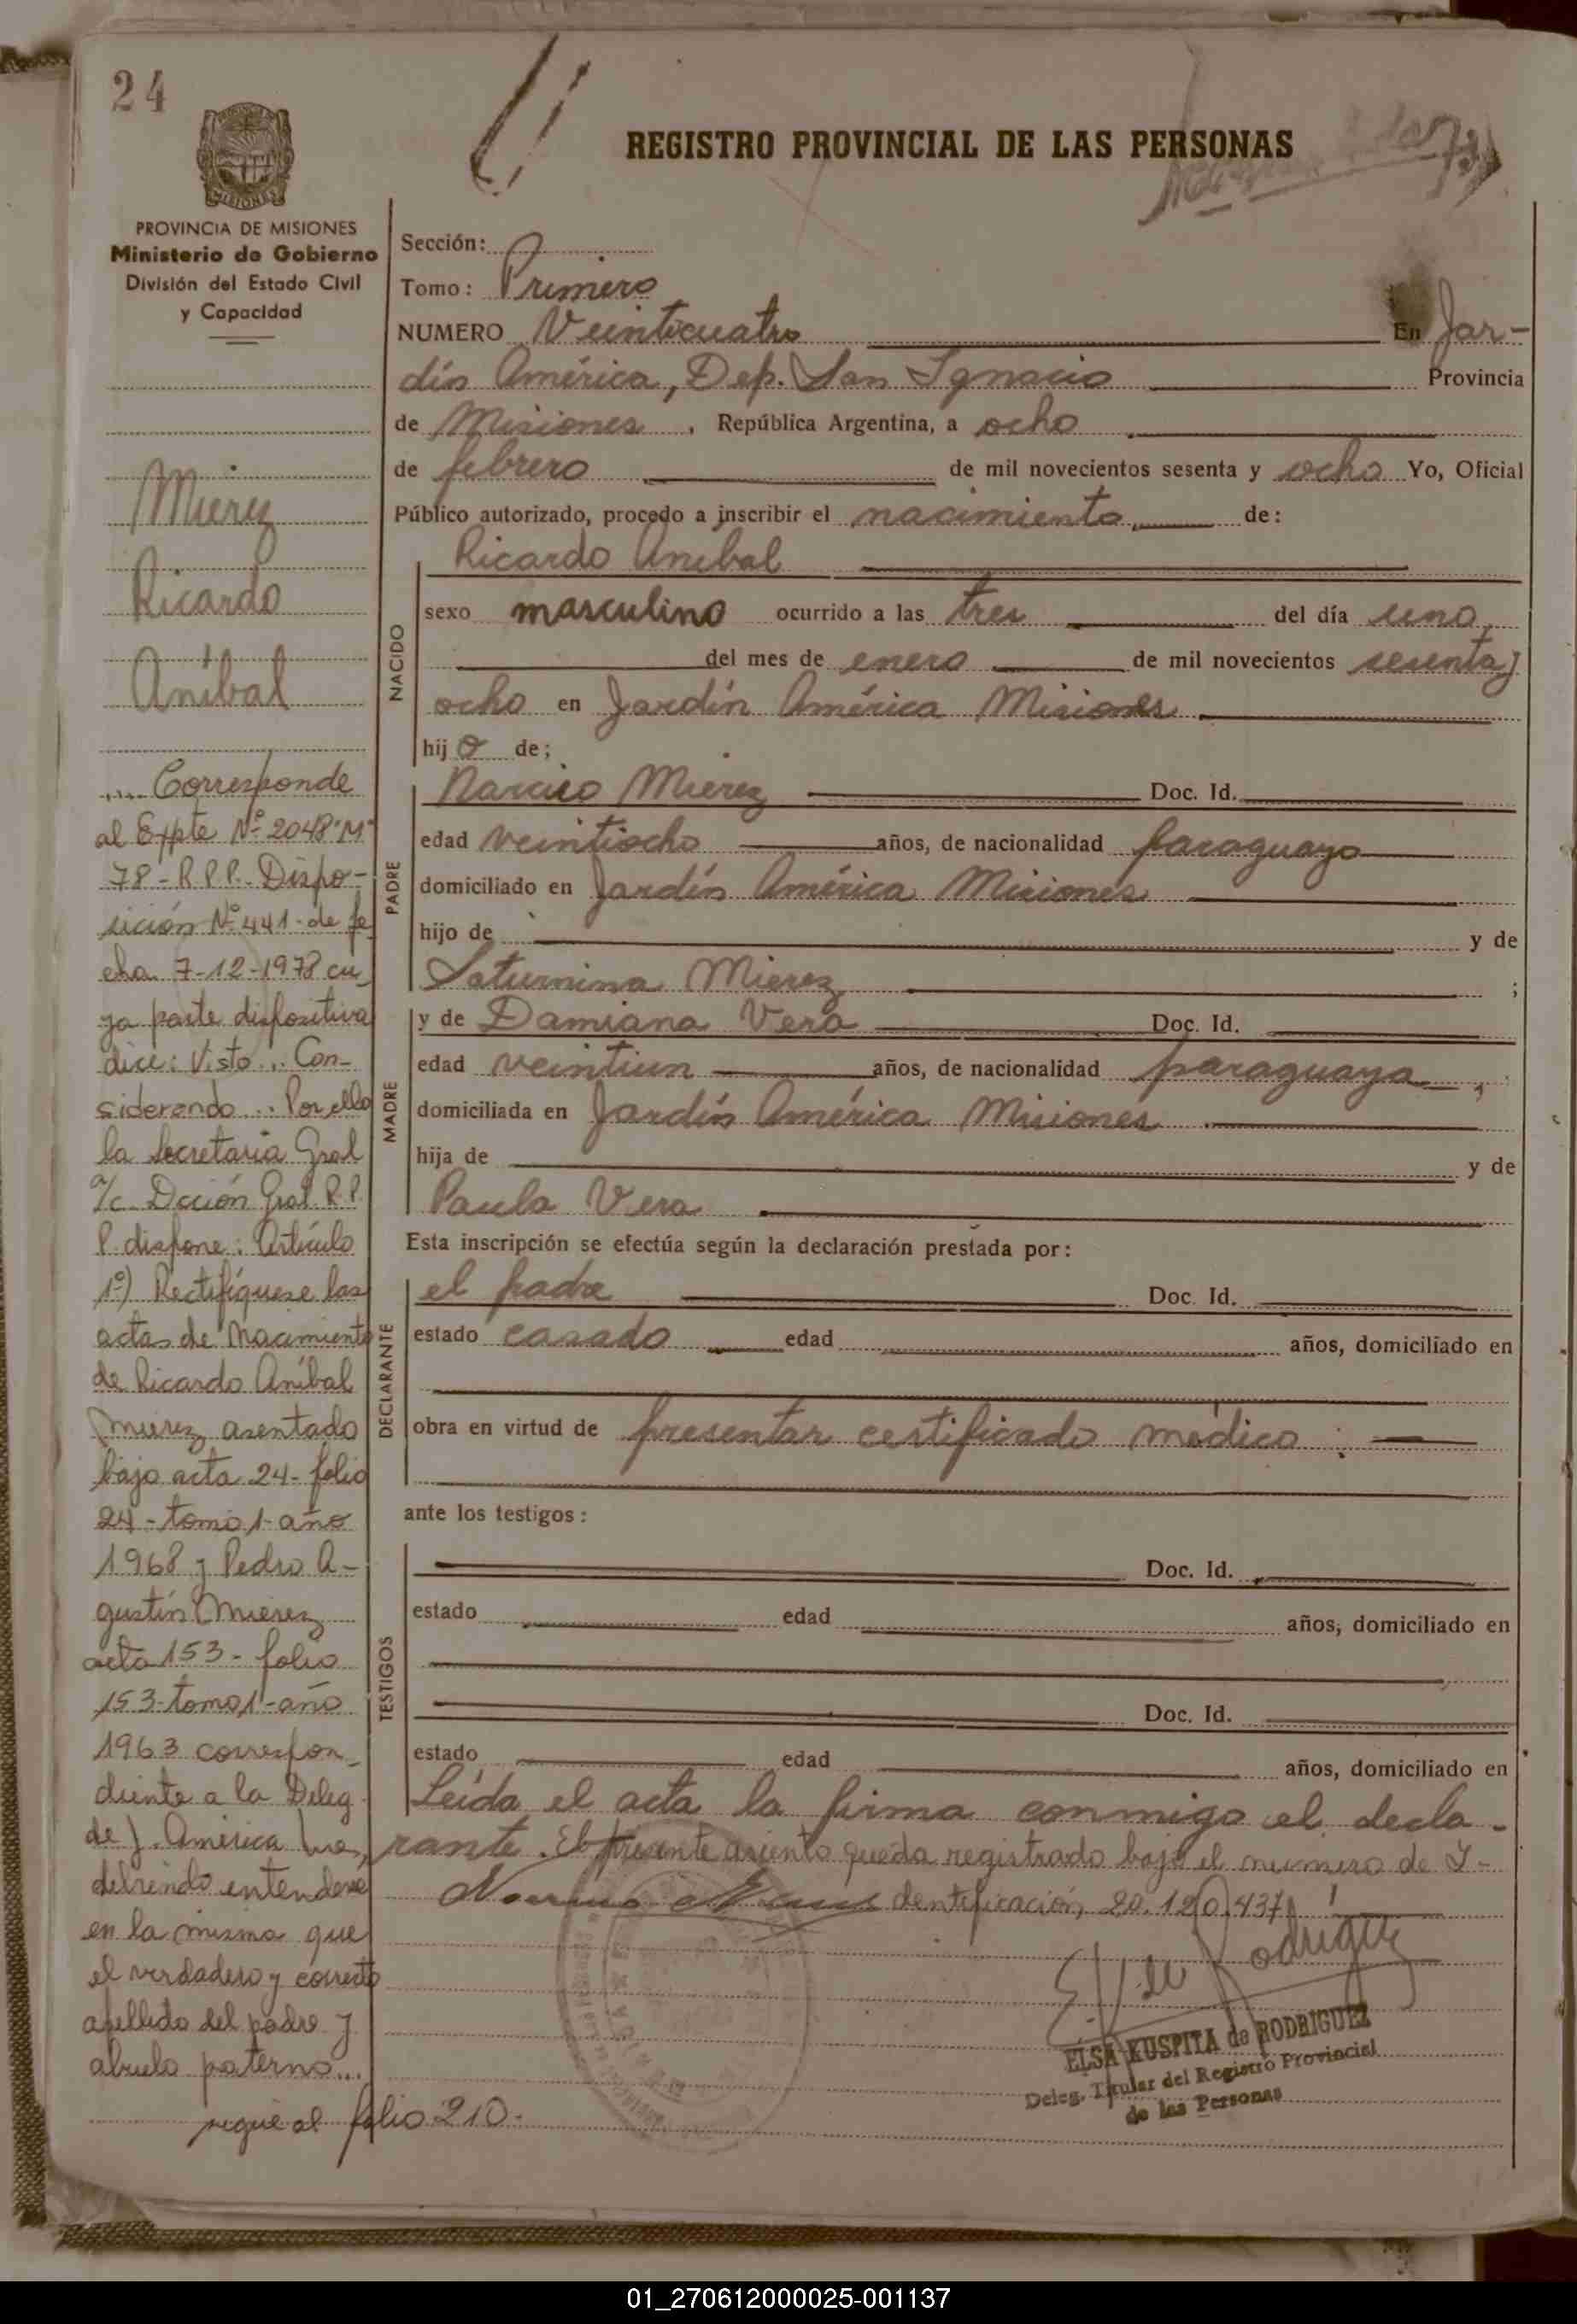 24
REGISTRO PROVINCIAL DE LAS PERSONAS
MISIONES
PROVINCIA DE MISIONES
Ministerio de Gobierno
División del Estado Civil
y Capacidad
Mierez
Ricardo
Aníbal
.... Corresponde
al Expte Nº 2048 "M"
78 - R.P.P. Dispo-
sición Nº 441 - de fe
cha 7-12-1978 cu-
ya parte dispositiva
dice: Visto... Con-
siderando... Por ello
la Secretaria Gral
a/c. Dcción Gral. R.P.
P. dispone: Artículo
1º) Rectifíquese las
actas de Nacimiento
de Ricardo Aníbal
Mierez asentado
bajo acta 24 - folio
24 - tomo 1 - año
1968 y Pedro A-
gustín Mierez
acta 153 - folio
153 - tomo 1 - año
1963 correspon-
diente a la Deleg.
de J. América
debiendo entenderse
en la misma que
el verdadero y correcto
apellido del padre y
abuelo paterno...
sigue al folio 210.
Sección:
Tomo: Primero
NUMERO Veinticuatro En Jar-
dín América, Dep. San Ignacio Provincia
de Misiones, República Argentina, a ocho
de febrero de mil novecientos sesenta y ocho Yo, Oficial
Público autorizado, procedo a inscribir el nacimiento, de:
Ricardo Anibal
NACIDO
sexo masculino ocurrido a las tres del día uno,
del mes de enero de mil novecientos sesenta y
ocho en Jardín América Misiones
hijo de;
PADRE
Narciso Mierez Doc. Id.
edad veintiocho años, de nacionalidad paraguayo
domiciliado en Jardín América Misiones
hijo de y de
Saturnina Mierez ;
MADRE
y de Damiana Vera Doc. Id.
edad veintiun años, de nacionalidad paraguaya,
domiciliada en Jardín América Misiones
hija de y de
Paula Vera
Esta inscripción se efectúa según la declaración prestada por:
DECLARANTE
el padre Doc. Id.
estado casado edad años, domiciliado en
obra en virtud de presentar certificado médico.
ante los testigos:
TESTIGOS
Doc. Id.
estado edad años, domiciliado en
Doc. Id.
estado edad años, domiciliado en
Leída el acta la firma conmigo el decla-
rante. El presente asiento queda registrado bajo el número de I-
dentificación, 20.120.437
ELSA KUSPITA de RODRIGUEZ
Deleg. Titular del Registro Provincial
de las Personas
01_270612000025-001137